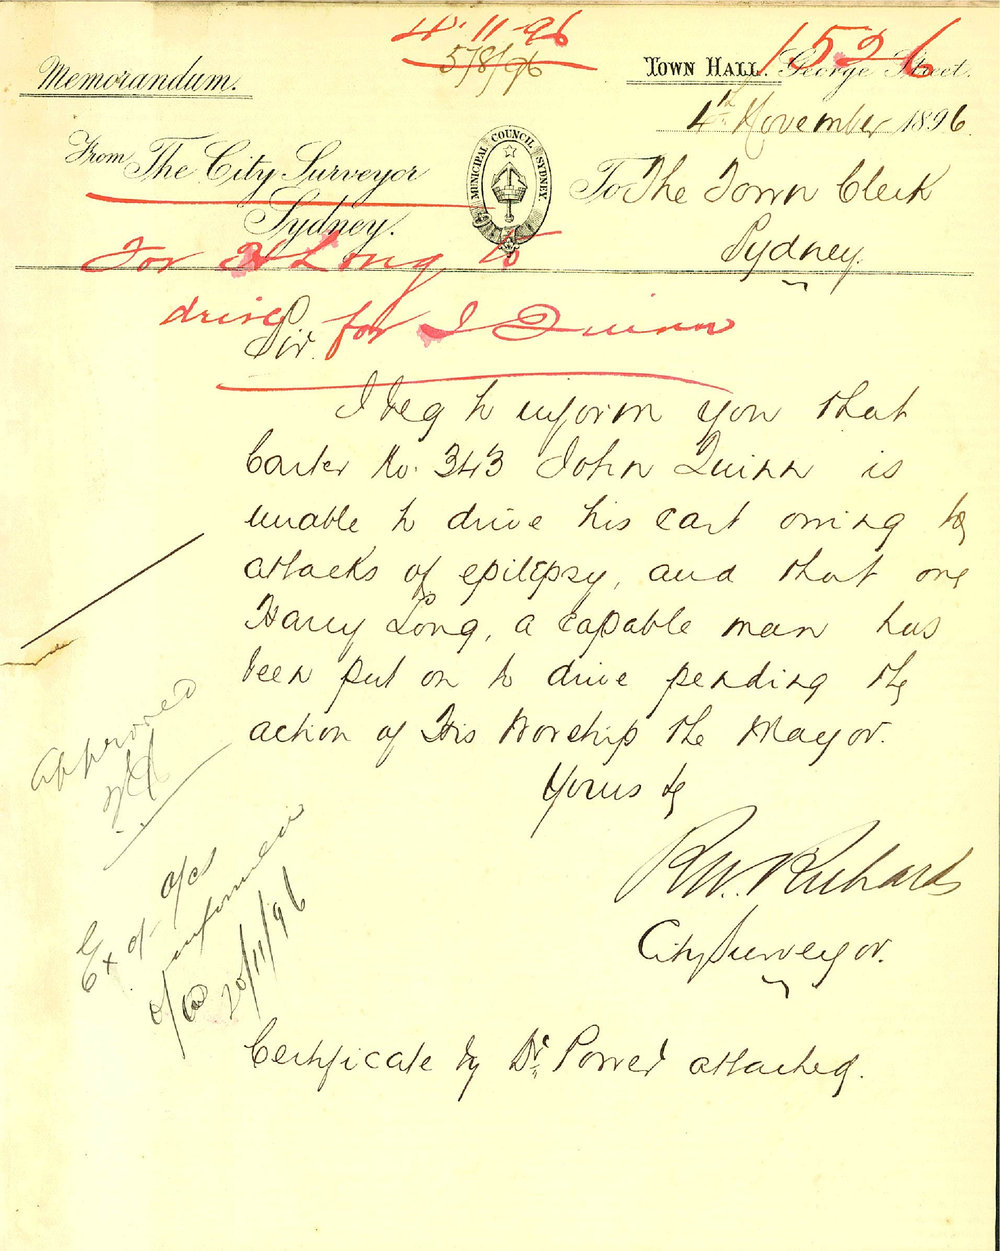 4.11.96
5/8/96
1526
Memorandum.
TOWN HALL. George Street.
4th November 1896
From The City Surveyor
Sydney.
MUNICIPAL COUNCIL SYDNEY
To The Town Clerk
Sydney.
For H Long to
drive for J Quinn
Sir.
I beg to inform you that
Carter No. 343 John Quinn is
unable to drive his cart owing to
attacks of epilepsy, and that one
Harry Long, a capable man has
been put on to drive pending the
action of His Worship the Mayor.
Yours &
R.W. Richards
City Surveyor.
Approved
Ex of
informed
20/11/96
Certificate by Dr. Power attached.